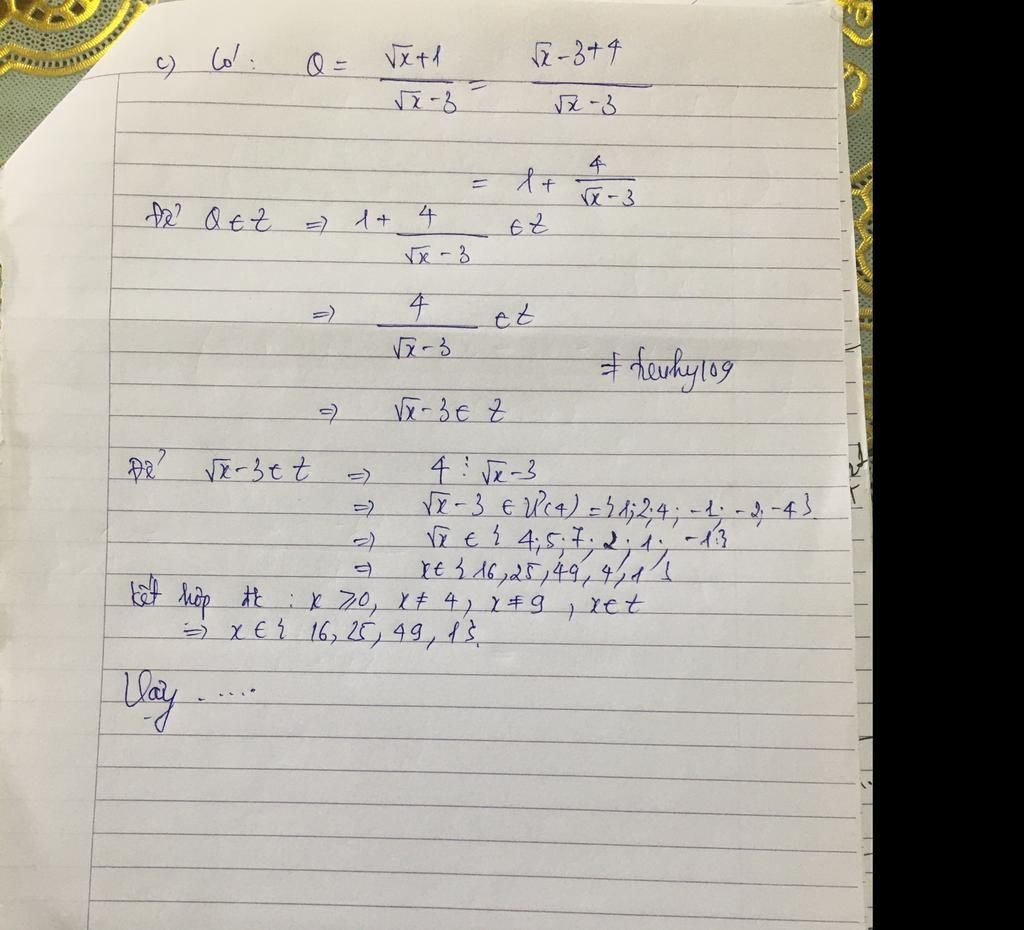 c) Có: Q = (√x+1)/(√x-3) = (√x-3+4)/(√x-3)
= 1 + 4/(√x-3)
Để Q ∈ Z => 1 + 4/(√x-3) ∈ Z
=> 4/(√x-3) ∈ Z
# heuhy109
=> √x-3 ∈ Z
Để √x-3 ∈ Z => 4 ⋮ √x-3
=> √x-3 ∈ Ư(4) = {1; 2; 4; -1; -2; -4}
=> √x ∈ { 4; 5; 7; 2; 1; -1}
=> x ∈ {16, 25, 49, 4, 1}
Kết hợp đk : x ⩾ 0, x ≠ 4, x ≠ 9, x ∈ Z
=> x ∈ { 16, 25, 49, 1}.
Vậy .....